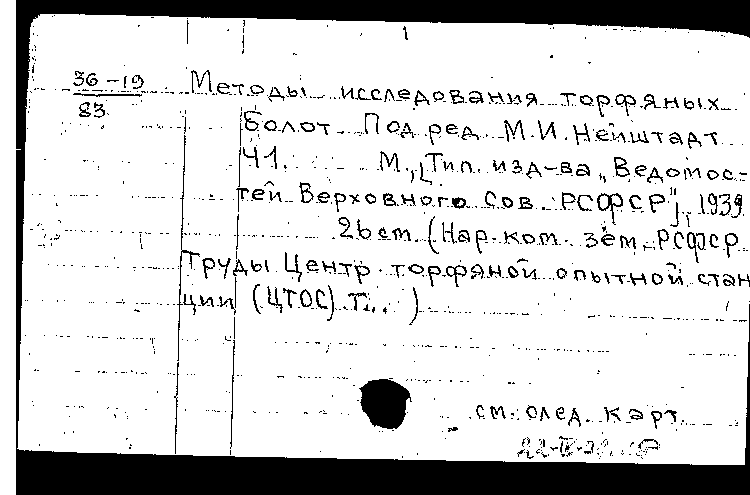 1
36-19 Методы исследования торфяных
83 болот. Под ред. М.И. Нейштадт
Ч1. М., [Тип. изд-ва „Ведомос-
тей Верховного Сов. РСФСР"], 1939
26 см. (Нар. ком. зем. РСФСР
Труды Центр. торфяной опытной стан
ции (ЦТОС). Т1.. )
см. след. карт.